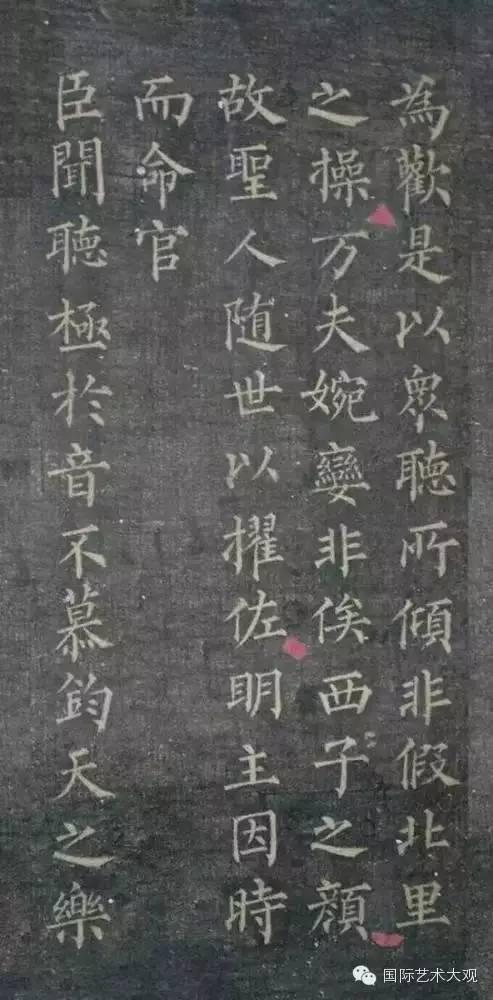 為歡是以衆聽所傾非假北里
之操万夫婉孌非俟西子之顔
故聖人随世以擢佐明主因時
而命官
臣聞聴極於音不慕鈞天之樂
国际艺术大观